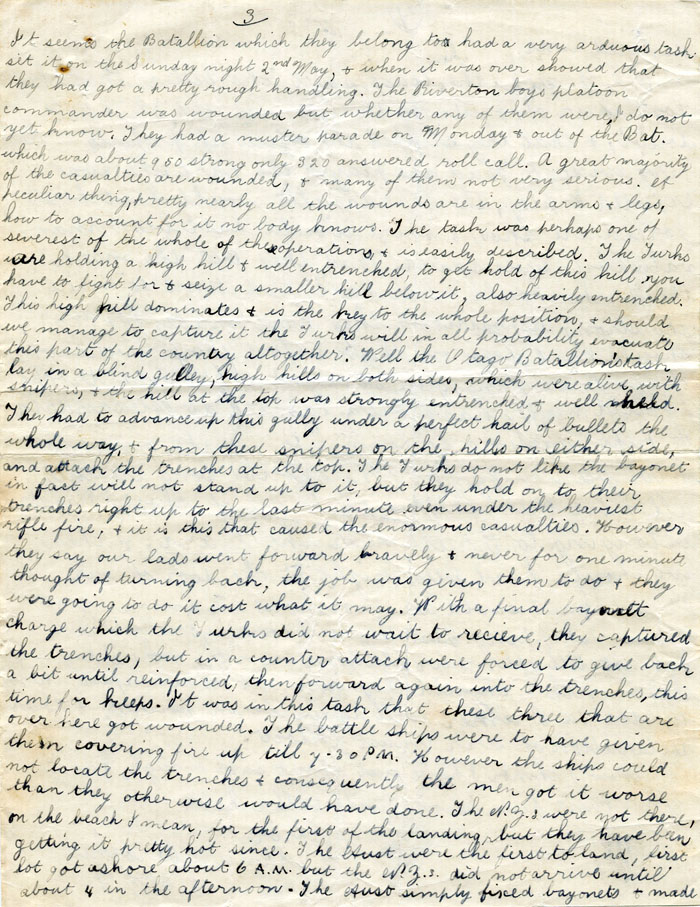 3
It seems the Batallion which they belong too had a very arduous task
set it on the Sunday night 2nd May, & when it was over showed that
they had got a pretty rough handling. The Riverton boys platoon
commander was wounded but whether any of them were, I do not
yet know. They had a muster parade on Monday & out of the Bat.
which was about 950 strong only 320 answered roll call. A great majority
of the casualties are wounded, & many of them not very serious. A
peculiar thing, pretty nearly all the wounds are in the arms & legs,
how to account for it no body knows. The task was perhaps one of
severest of the whole of the operations, & is easily described. The Turks
are holding a high hill & well entrenched, to get hold of this hill you
have to fight for & seize a smaller hill below it, also heavily entrenched.
This high hill dominates & is the key to the whole position, & should
we manage to capture it the Turks will in all probability evacuate
this part of the country altogether. Well the Otago Batallion's task
lay in a blind gulley, high hills on both sides, which were alive, with
snipers, & the hill at the top was strongly entrenched & well held.
They had to advance up this gully under a perfect hail of bullets the
whole way, & from these snipers on the hills on either side,
and attack the trenches at the top. The Turks do not like the bayonet
in fact will not stand up to it, but they hold on to their
trenches right up to the last minute even under the heaviest
rifle fire, & it is this that caused the enormous casualties. However
they say our lads went forward bravely & never for one minute
thought of turning back, the job was given them to do & they
were going to do it cost what it may. With a final bayonett
charge which the Turks did not wait to recieve, they captured
the trenches, but in a counter attack were forced to give back
a bit until reinforced, then forward again into the trenches, this
time for keeps. It was in this task that these three that are
over here got wounded. The battle ships were to have given
them covering fire up till 7-30 P.M. However the ships could
not locate the trenches & consequently the men got it worse
than they otherwise would have done. The N.Z.s were not there,
on the beach I mean, for the first of the landing, but they have been
getting it pretty hot since. The Aust were the first to land, first
lot got ashore about 6 A.M. but the N.Z.s. did not arrive until
about 4 in the afternoon. The Aust simply fixed bayonets & made